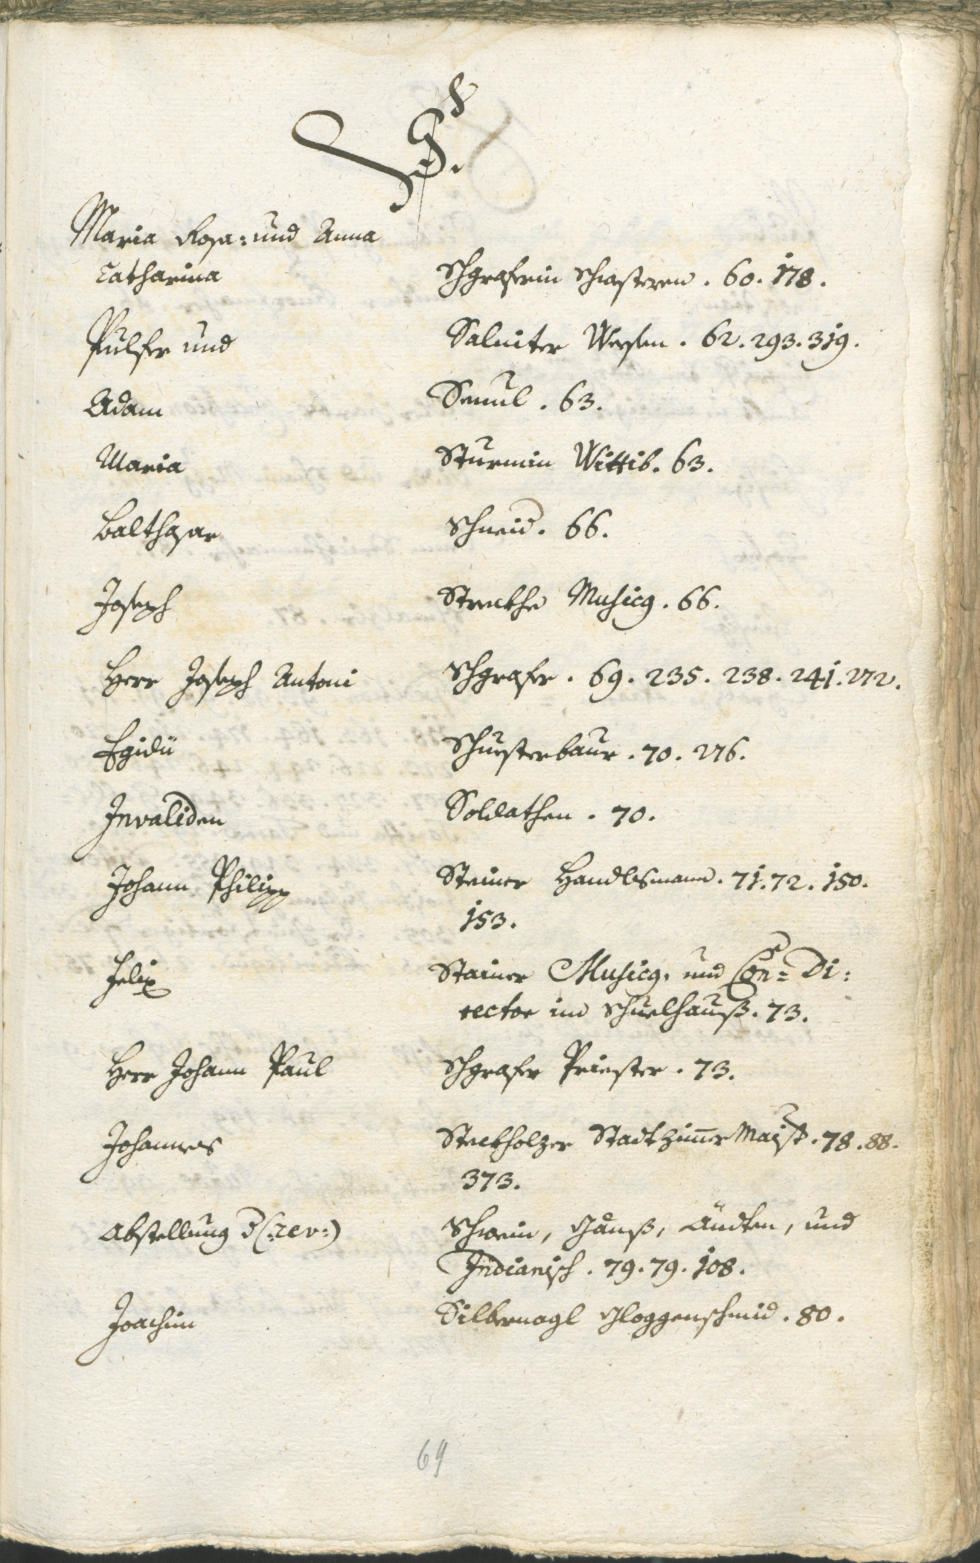 S.
Maria Rosa: und Anna
Catharina Schgrafrin Schwesteren . 60. 178.
Pulfer und Saliniter Wesen . 62. 293. 319.
Adam Semul . 63.
Maria Sturmin Wittib. 63.
Balthasar Schneid. 66.
Joseph Musicg . 66.
Herr Joseph Antoni Schgrafer . 69. 235. 238. 241. 272.
Egidii Schuesterbaur . 70. 276.
Invaliden Soldathen . 70.
Johann Philipp Steiner Handlsmann. 71. 72. 150.
153.
Felix Stainer Musicg. und Con= Di:
rector im Schuelhauß. 73.
Herr Johann Paul Schgrafer Priester . 73.
Johannes Stockholzer Stadtzim̅er Maist. 78. 88.
373.
Abstellung d (:rev:) Schwein, Gänß, Ändten, und
Indianisch . 79. 79. 108.
Joachim Silbernagl Gloggenschmid . 80.
69